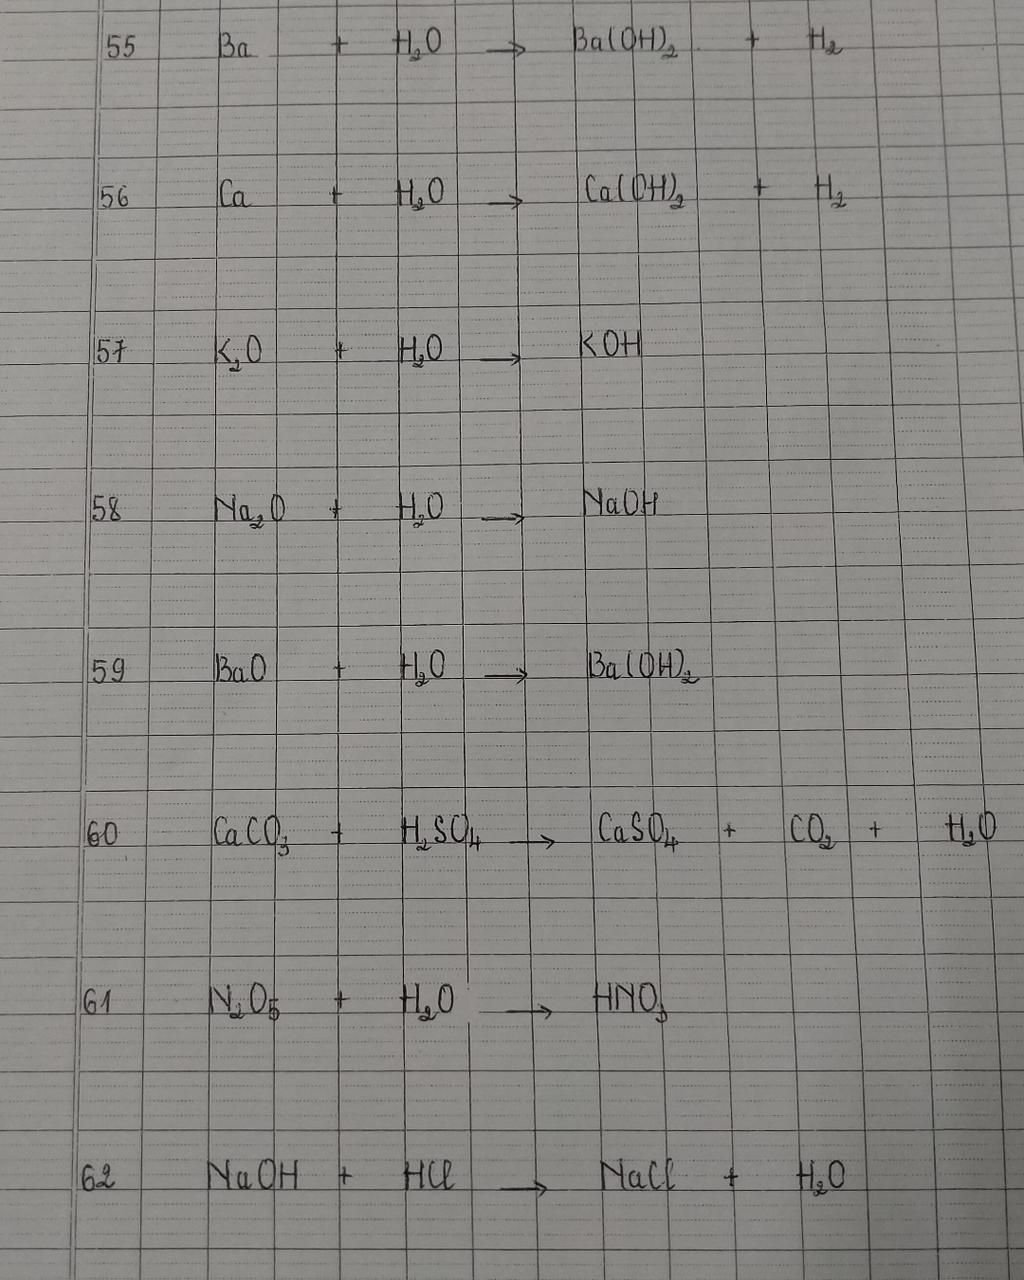 55 Ba + H₂O → Ba(OH)₂ + H₂
56 Ca + H₂O → Ca(OH)₂ + H₂
57 K₂O + H₂O → KOH
58 Na₂O + H₂O → NaOH
59 BaO + H₂O → Ba(OH)₂
60 CaCO₃ + H₂SO₄ → CaSO₄ + CO₂ + H₂O
61 N₂O₅ + H₂O → HNO₃
62 NaOH + HCl → NaCl + H₂O